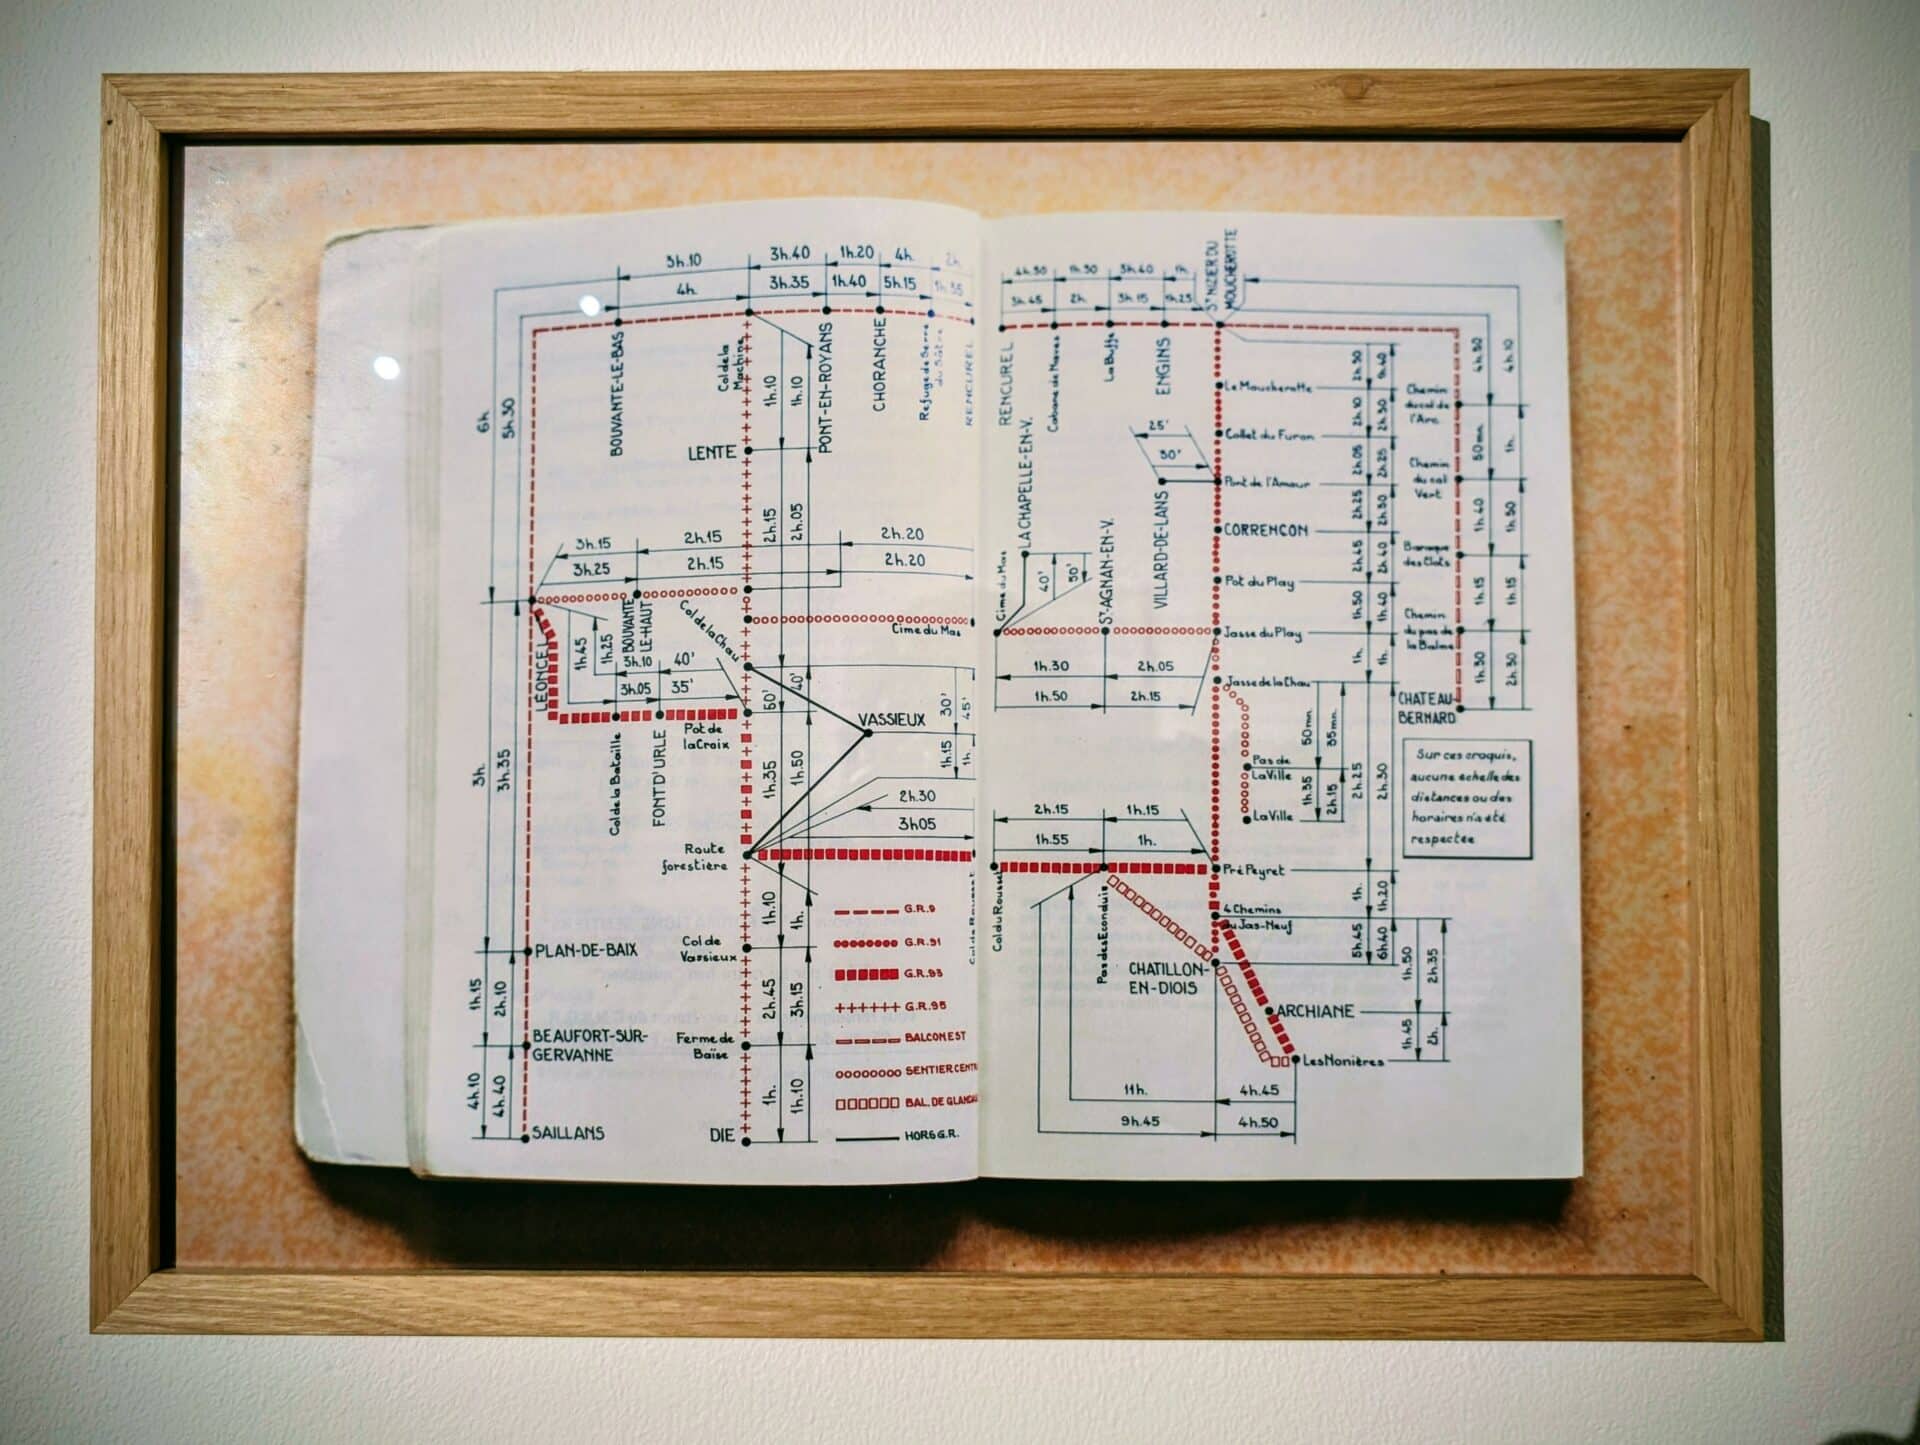 3h.10
3h.40
1h.20
4h.
2h.
4h.
3h.35
1h.40
5h.15
1h.35
6h.
5h.30
BOUVANTE-LE-BAS
Col de la
Machine
1h.10
1h.10
PONT-EN-ROYANS
CHORANCHE
Refuge de Serre
du Sâtre
RENCUREL
LENTE
2h.15
2h.05
3h.15
2h.15
2h.20
3h.25
2h.15
2h.20
LÉONCEL
1h.45
1h.25
BOUVANTE
LE-HAUT
Col de la Chau
Cime du Mas
3h.10
40'
3h.05
35'
50'
40'
30'
45'
VASSIEUX
Col de la Bataille
FONT D'URLE
Pot de
la Croix
3h.
3h.35
1h.35
1h.50
1h.15
1h.
2h.30
3h05
Route
forestière
1h.10
1h.
PLAN-DE-BAIX
Col de
Vassieux
1h.15
2h.10
2h.45
3h.15
BEAUFORT-SUR-
GERVANNE
Ferme de
Baïse
4h.10
4h.40
1h.
1h.10
SAILLANS
DIE
G.R.9
G.R.91
G.R.93
G.R.95
BALCON EST
SENTIER CENTR
BAL. DE GLANDA
HORS G.R.
4h.30
1h.30
3h.40
1h.
3h.45
2h.
3h.15
1h.25
ST NIZIER DU
MOUCHEROTTE
RENCUREL
Cabane de Naves
La Buffe
ENGINS
Le Moucherotte
Collet du Furon
Pont de l'Amour
CORRENÇON
Pot du Play
Jasse du Play
Jasse de la Chau
25'
30'
LA CHAPELLE-EN-V.
Cime du Mas
40'
50'
ST-AGNAN-EN-V.
VILLARD-DE-LANS
1h.30
2h.05
1h.50
2h.15
2h.10
2h.30
2h.05
2h.25
2h.25
2h.50
2h.45
2h.40
1h.50
1h.40
1h.
1h.
Chemin
du col de
l'Arc
Chemin
du col
Vert
Baraque
des Clots
Chemin
du pas de
la Balme
CHATEAU-
BERNARD
4h.30
4h.10
50mn.
1h.
1h.40
1h.50
1h.15
1h.15
1h.30
2h.30
Sur ces croquis,
aucune échelle des
distances ou des
horaires n'a été
respectée
50mn.
35mn.
Pas de
La Ville
1h.35
2h.15
La Ville
2h.25
2h.30
2h.15
1h.15
1h.55
1h.
Pré Peyret
Col du Rousset
Pas des Econduis
1h.
1h.20
4 Chemins
du Jas-Neuf
5h.45
6h.40
CHATILLON-
EN-DIOIS
1h.50
2h.35
ARCHIANE
1h.45
2h.
Les Nonières
11h.
4h.45
9h.45
4h.50